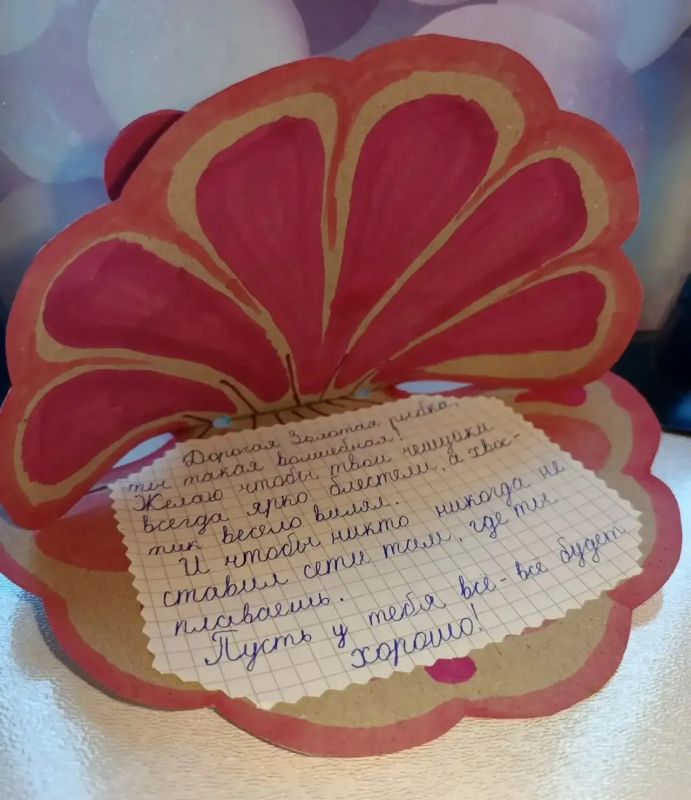 Дорогая Золотая рыбка,
ты такая волшебная!
Желаю чтобы твои чешуйки
всегда ярко блестели, а хвос-
тик весело вилял.
И чтобы никто никогда не
ставил сети там, где ты
плаваешь.
Пусть у тебя все-всё будет
хорошо!